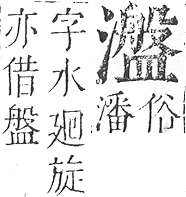 瀊
俗
潘
字水廻旋
亦借盤